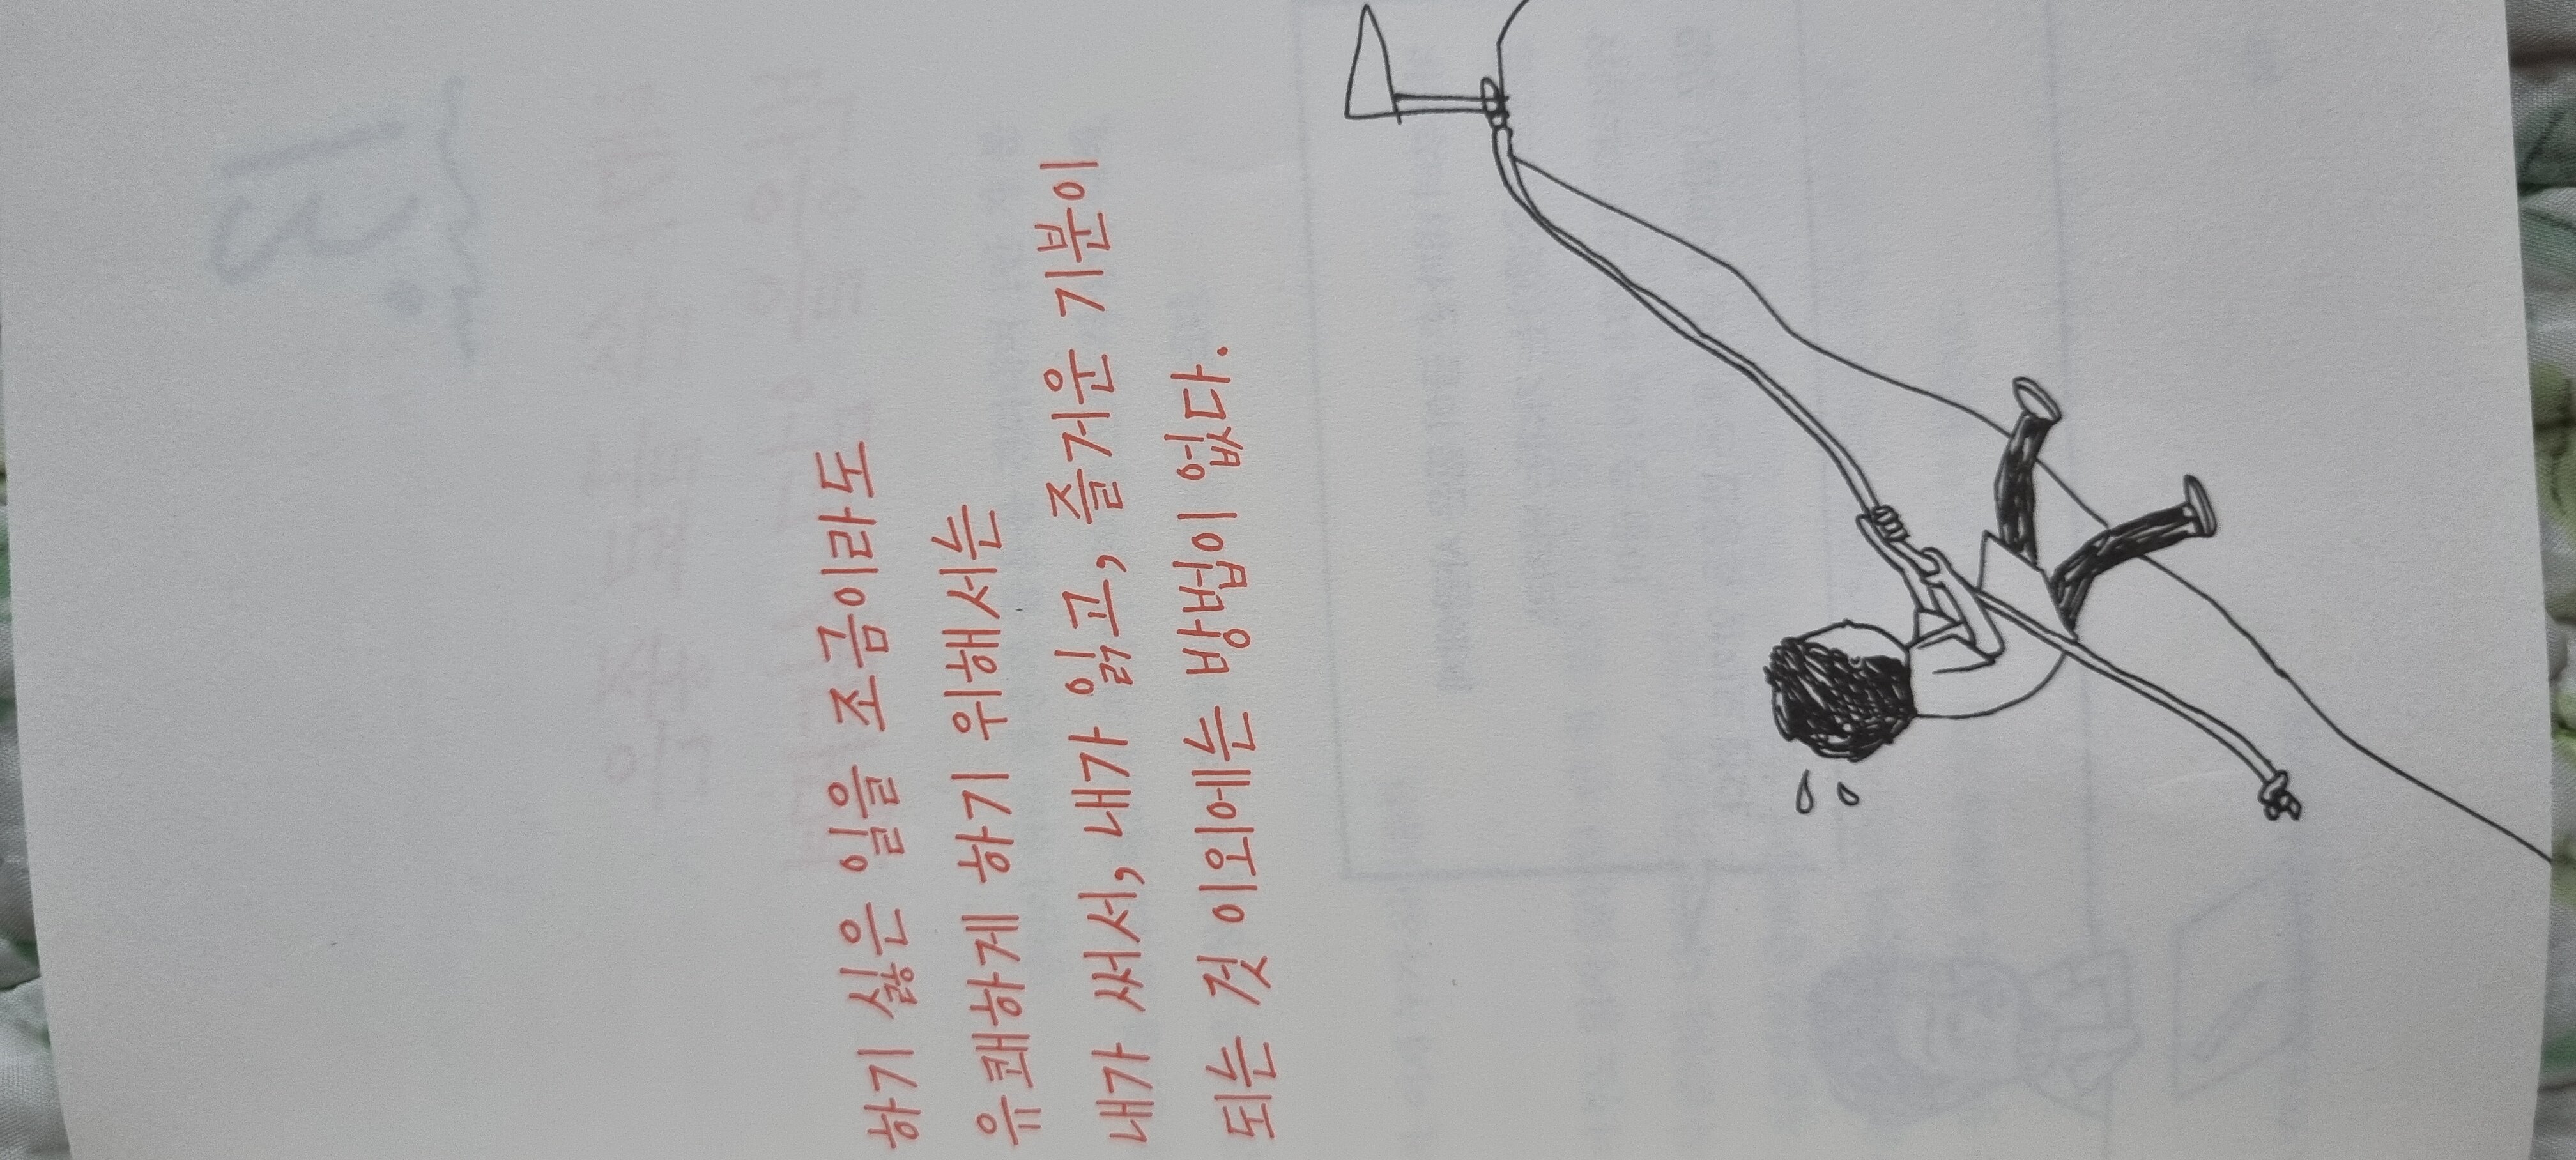 하기 싫은 일을 조금이라도
유쾌하게 하기 위해서는
내가 써서, 내가 읽고, 즐거운 기분이
되는 것 이외에는 방법이 없다.